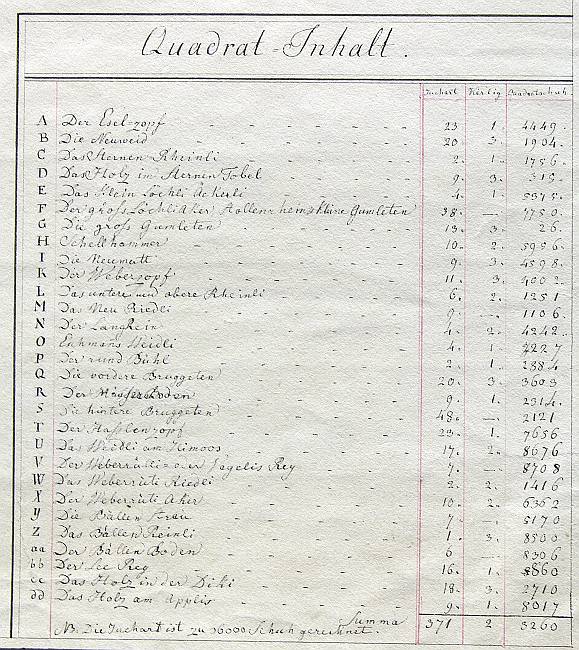 Quadrat-Inhalt.
Juchart Vierlig Quadratschuh
A Der Esel-zopf 23. 1. 4449.
B Die Neuweid 20. 3. 1904.
C Das Sternen-Rheinli 2. 1. 1756.
D Das Holz im Sternen Tobel 9. 3. 315.
E Das Klein Löchli Äckerli 4. 1. 5375.
F Der gross Löchliaker 38. — 7750.
G Die gross Gumleten 13. 3. 26.
H Schellhammer 10. 2. 5956.
I Die Neumatt 9. 3. 4598.
K Der Weberzopf 11. 3. 4002.
L Das untere und obere Rheinli 6. 2. 1251
M Das Neu Riedli 9. — 1106.
N Der Langrein 4. 2. 4242.
O Weidli 4. 1. 7227
P Der rund Bühl 2. 1. 2884
Q Die vordere Bruggeten 20. 3. 3603
R Der Boden 9. 1. 2314.
S Die hintere Bruggeten 48. — 2121
T Der Hasslenzopf 29. 1. 7656
U Das Weidli am Himoos 17. 2. 8676
V Der Weberrütti 7. — 8708
W Das Weberrüte Riedli 2. 2. 1416
X Der Weberrüte Aker 10. 2. 6362
Y Die Bällen 7 — 5170
Z Das Bällen Reinli 1. 3. 8500
aa Der Bällen Boden 6 — 8306
bb Der Lee 16. 1. 8860
cc Das Holz in der Diki 18. 3. 2710
dd Das Holz am Applis 9. 1. 8017
Summa 371 2 3260
NB. Die Juchart ist zu 36000 Schuh gerechnet.